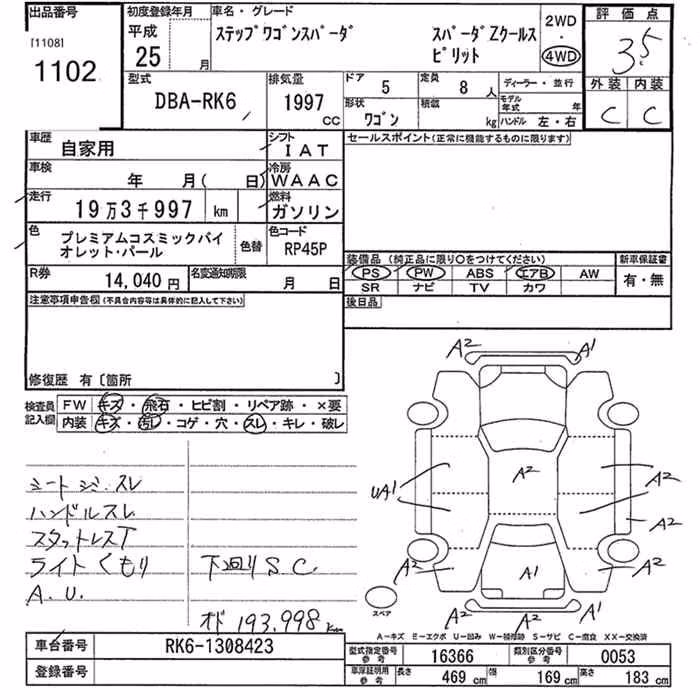 出品番号
[1108]
1102
初度登録年月
平成
25 月
車名・グレード
ステップワゴンスパーダ
スパーダZクールス
ピリット
2WD
・
4WD
評価点
3.5
外装 内装
C C
型式
DBA-RK6
排気量
1997
CC
ドア 5
定員 8 人
形状 ワゴン
積載 kg
ディーラー・並行
モデル年式 年
ハンドル 左・右
車歴 自家用
シフト IAT
車検 年 月( 日)
冷房 WAAC
走行 19万3千997 km
燃料 ガソリン
色 プレミアムコスミックバイ
オレット・パール
色替
色コード RP45P
R券 14,040円
名変通知期限 月 日
セールスポイント(正常に機能するものに限ります)
装備品(純正品に限り○をつけてください)
PS PW ABS エアB AW
SR ナビ TV カワ
新車保証書
有・無
後日品
注意事項申告欄(不具合内容等は具体的に記入して下さい)
修復歴 有〔箇所 〕
検査員記入欄
FW キズ・飛石・ヒビ割・リペア跡・×要
内装 キズ・汚レ・コゲ・穴・スレ・キレ・破レ
シートシミ.スレ
ハンドルスレ
スタットレスT
ライトくもり
A.U.
下回りS.C.
オド 193,998km
A2 A1
A2
UA1
A2
A2
A2 A1 A2
A2 A2 A1
スペア
A-キズ E-エクボ U-凹み W-補修跡 S-サビ C-腐食 XX-交換済
車台番号 RK6-1308423
登録番号
型式指定番号参考 16366
類別区分番号参考 0053
車庫証明用参考 長さ 469 cm 幅 169 cm 高さ 183 cm